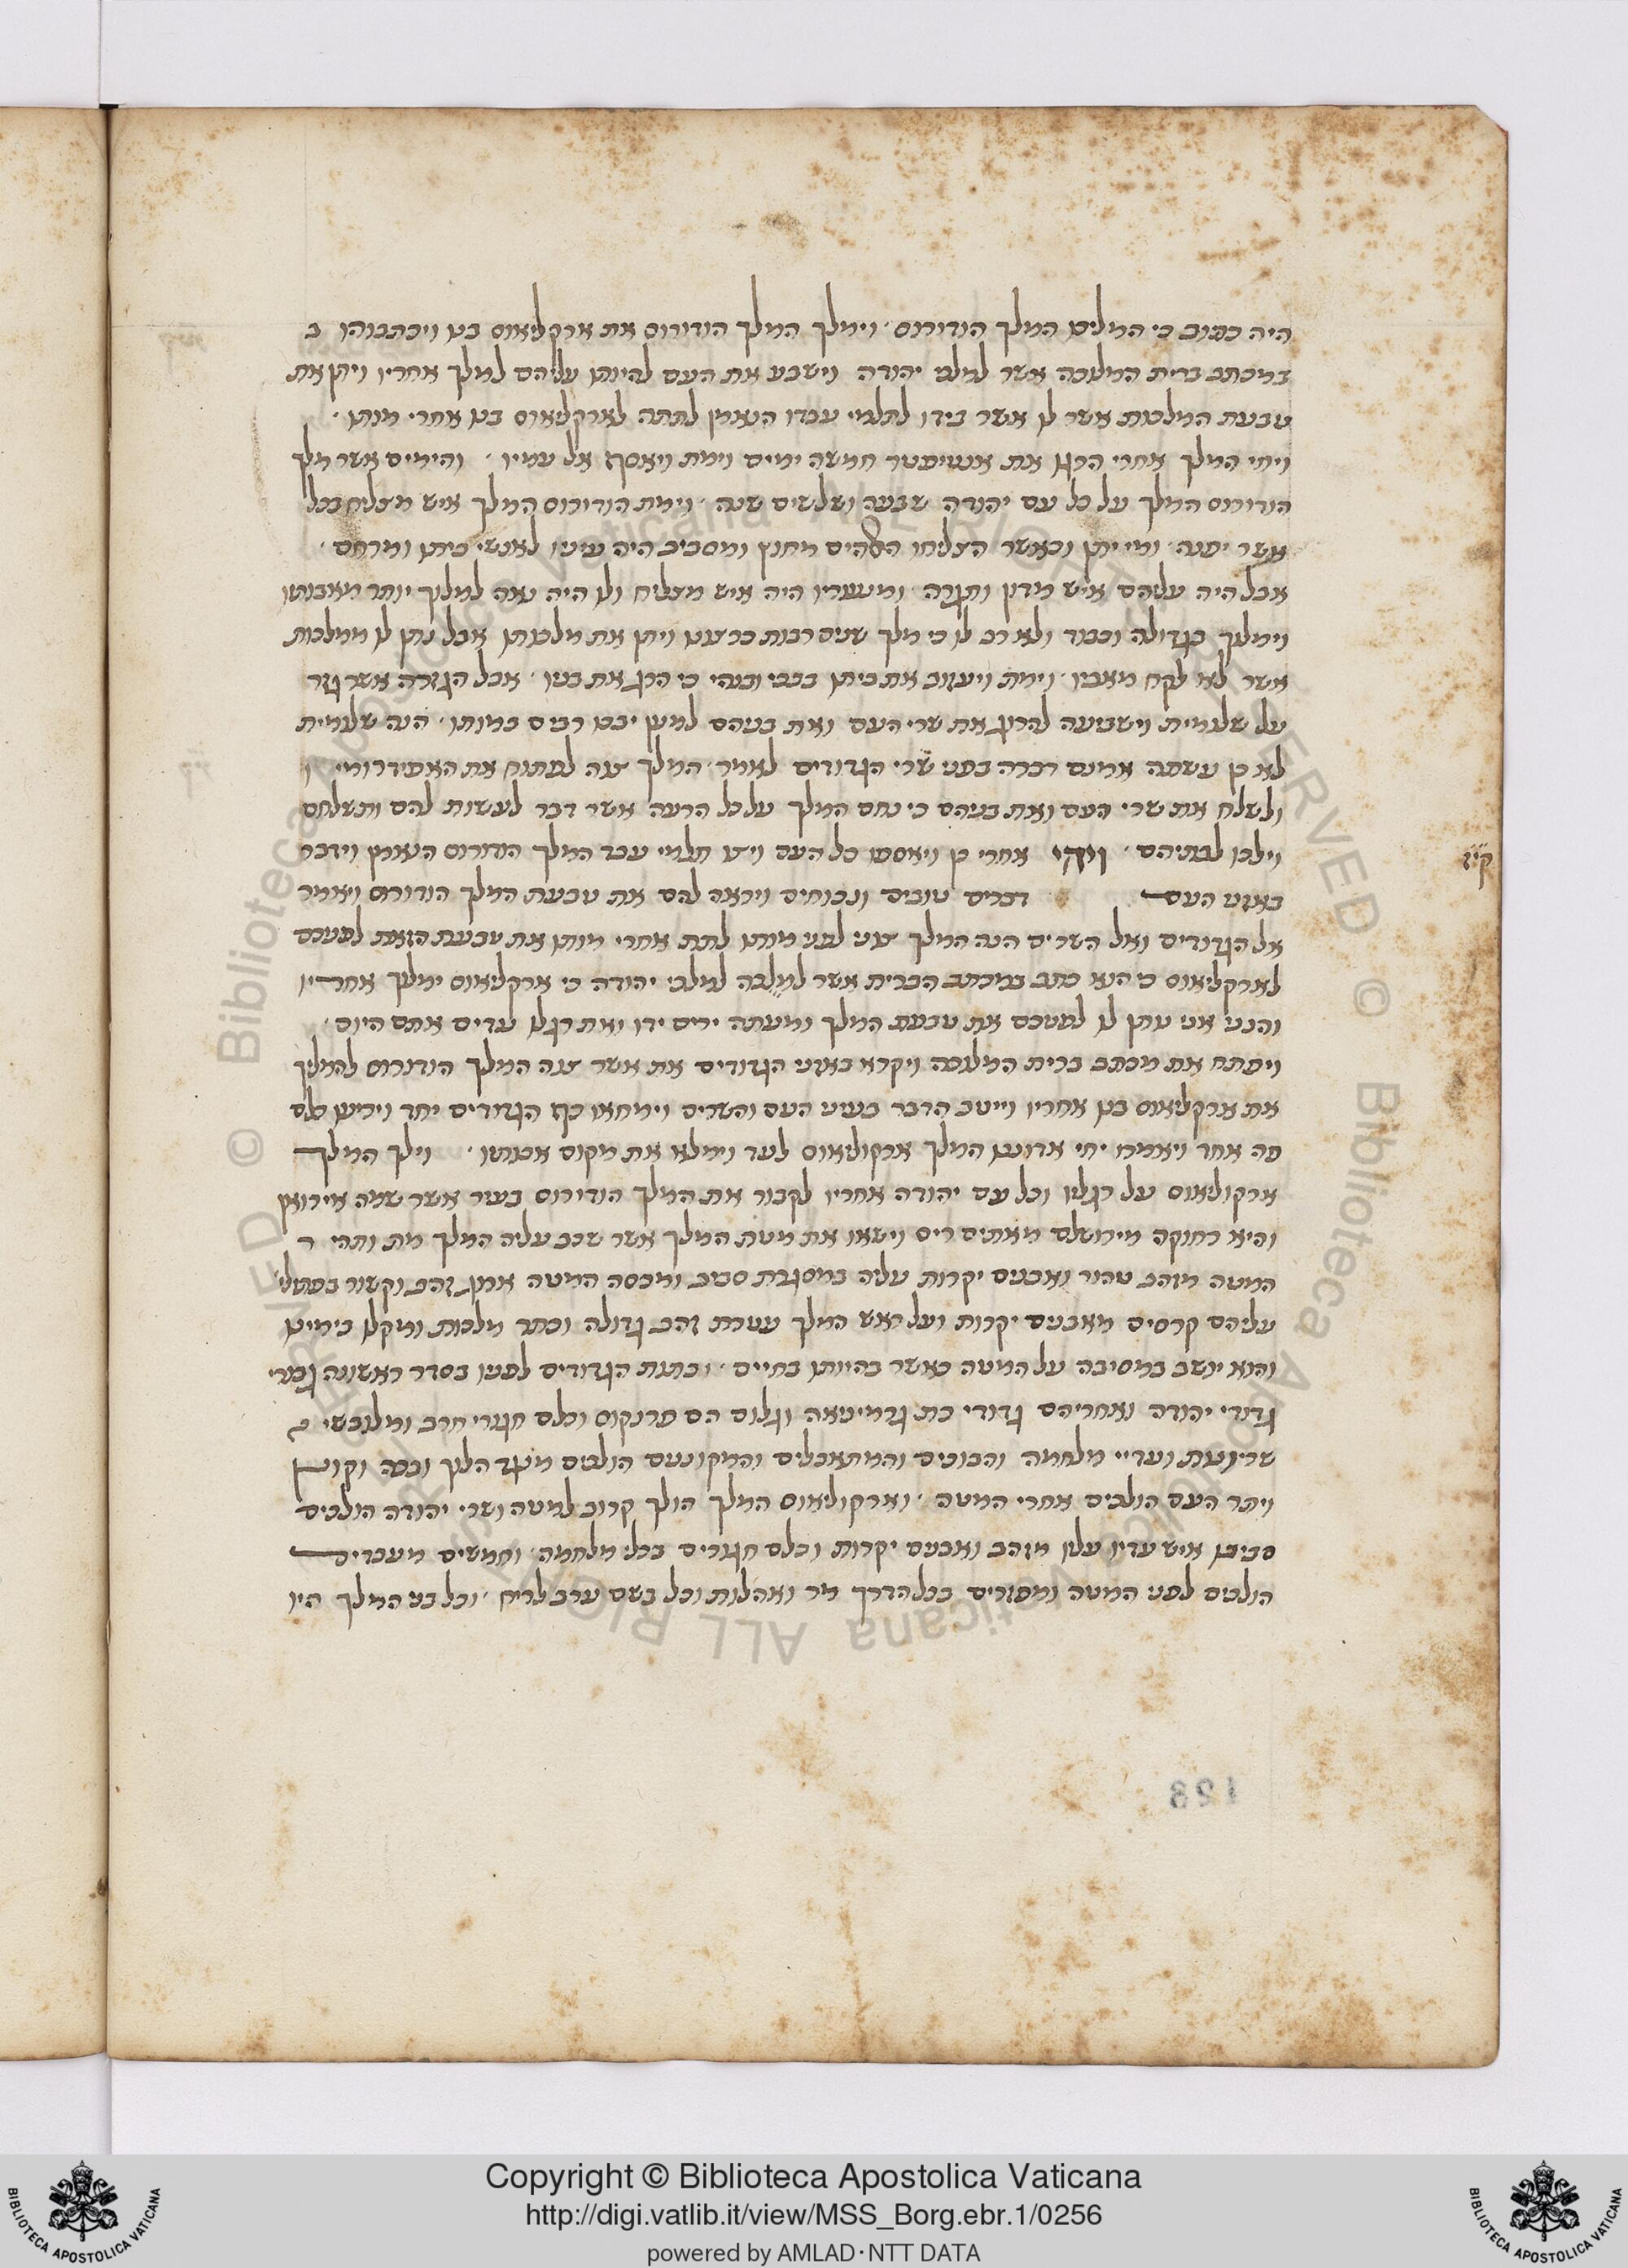 היה כתוב כי המליכו המלך הורודוס. וימלך המלך הורודוס את ארקילאוס בנו ויכתבוהו ב
במכתב ברית המלוכה אשר למלכי יהודה וישבע את העם להיותו עליהם למלך אחריו ויתן את
טבעת המלכות אשר לו אשר בידו לתלמי עבדו הנאמן לתתה לארקילאוס בנו אחרי מותו.
ויחי המלך אחרי הרגו את אנטיפטר חמשה ימים וימת ויאסף אל עמיו. והימים אשר מלך
הורודוס המלך על כל עם יהודה שבעה ושלשים שנה. וימת הורודוס המלך איש מצליח בכל
אשר יפנה. ומי יתן וכאשר הצליחו אלהים מחוץ ומסביב היה עניו לאנשי ביתו ומרחם.
אבל היה עליהם איש מדון ותגרה. ומנעוריו היה איש מצליח ולו היה נאה למלוך יותר מאבותיו
וימלוך בגדולה וכבוד ולא רב לו כי מלך שנים רבות כרצונו ויתן את מלכותו אבל נתן לו ממלכות
אשר לא לקח מאביו. וימת ויעזוב את ביתו בבכי ובנהי כי הרג את בניו. אבל הגזרה אשר גזר
על שלומית וישביעה להרוג את שרי העם ואת בניהם למען יבכו רבים במותו. הנה שלומית
לא כן עשתה אמנם דברה בפני שרי הגדודים לאמר. המלך צוה לפתוח את האפודרומי ו
ולשלח את שרי העם ואת בניהם כי נחם המלך על כל הרעה אשר דבר לעשות להם ותשלחם
וילכו לבתיהם. ויהי אחרי כן ויאספו כל העם ויצו תלמי עבד המלך הורודוס הנאמן וידבר
קי״ז
באזני העם דברים טובים ונכוחים ויראה להם את טבעת המלך הורודוס ויאמר
אל הגדודים ואל השרים הנה המלך צוני לפני מותו לתת אחרי מותו את טבעת הזאת לפניכם
לארקילאוס כי הוא כתב במכתב הברית אשר למלוכה למלכי יהודה כי ארקילאוס ימלוך אחריו
והנני אני נותן לו לפניכם את טבעת המלך ומעתה ירים ידו ואת רגלו עדים אתם היום.
ויפתח את מכתב ברית המלוכה ויקרא באזני הגדודים את אשר צוה המלך הורודוס להמליך
את ארקילאוס בנו אחריו וייטב הדבר בעיני העם והשרים וימחאו כף הגדודים יחד ויריעו כולם
פה אחד ויאמרו יחי אדוננו המלך ארקולאוס לעד וימלא את מקום אבותיו. וילך המלך
ארקולאוס על רגליו וכל עם יהודה אחריו לקבור את המלך הורודוס בעיר אשר שמה אירואן
והיא רחוקה מירושלם מאתים ריס וישאו את מטת המלך אשר שכב עליה המלך מת ותהי ר
המטה מזהב טהור ואבנים יקרות עליה במסגרת סביב ומכסה המטה ארגמן זהב וקשור בפתילי
עליהם קרסים מאבנים יקרות ועל ראש המלך עטרת זהב גדולה וכתר מלכות ומקלו בימינו
והוא יושב במסיבה על המטה כאשר בהיותו בחיים. וכתות הגדודים לפניו בסדר ראשונה גבורי
גדודי יהודה ואחריהם גדודי כת גרמיניאה וגלוס הם פרנקוס וכלם חגורי חרב ומלובשי כ
שריונות ועדיי מלחמה והרוכבים והמתאבלים והמקוננים הולכים מעט הלוך ובכה וקונן
ויתר העם הולכים אחרי המטה. וארקולאוס המלך הולך קרוב למטה ושרי יהודה הולכים
סביביו איש עדיו עליו מזהב ואבנים יקרות וכלם חגורים בכלי מלחמה. וחמשים מעבדיו
הולכים לפני המטה ומפזרים בכל הדרך מר ואהלות וכל בשם ערב לריח. וכל בני המלך היו
123
Copyright © Biblioteca Apostolica Vaticana
http://digi.vatlib.it/view/MSS_Borg.ebr.1/0256
powered by AMLAD·NTT DATA